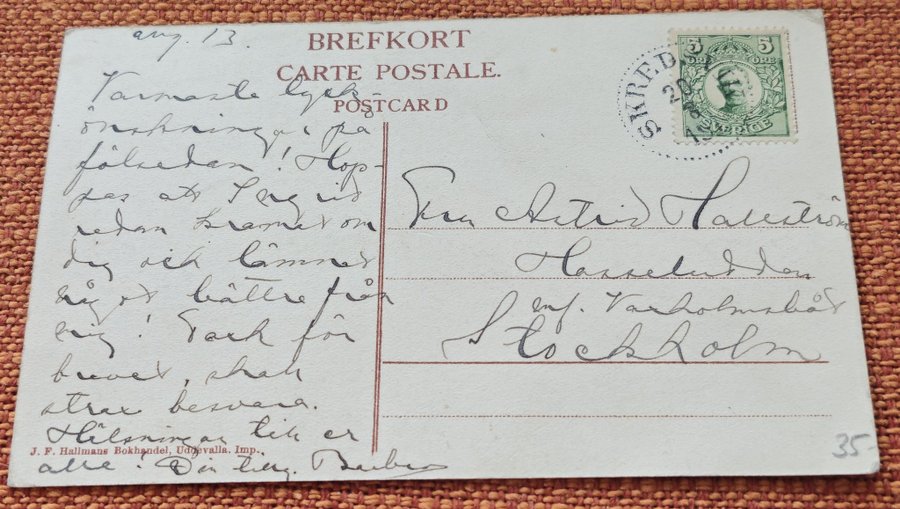 aug. 13.
BREFKORT
CARTE POSTALE.
POSTCARD
Varmaste lyck-
önskningar på
födsedan! Hop-
pas att Ingrid
redan kramat om
dig och lämnat
något bättre från
mig! Tack för
brevet, skall
strax besvara.
Hälsningar till er
alla! Din tillg. Barbro
J. F. Hallmans Bokhandel, Uddevalla. Imp.
SKREDS
20
8
13
5 5
ÖRE ÖRE
SVERIGE
Fru Astrid Hallström
Hasseludden
m/. Vaxholmsbåt
Stockholm
35-